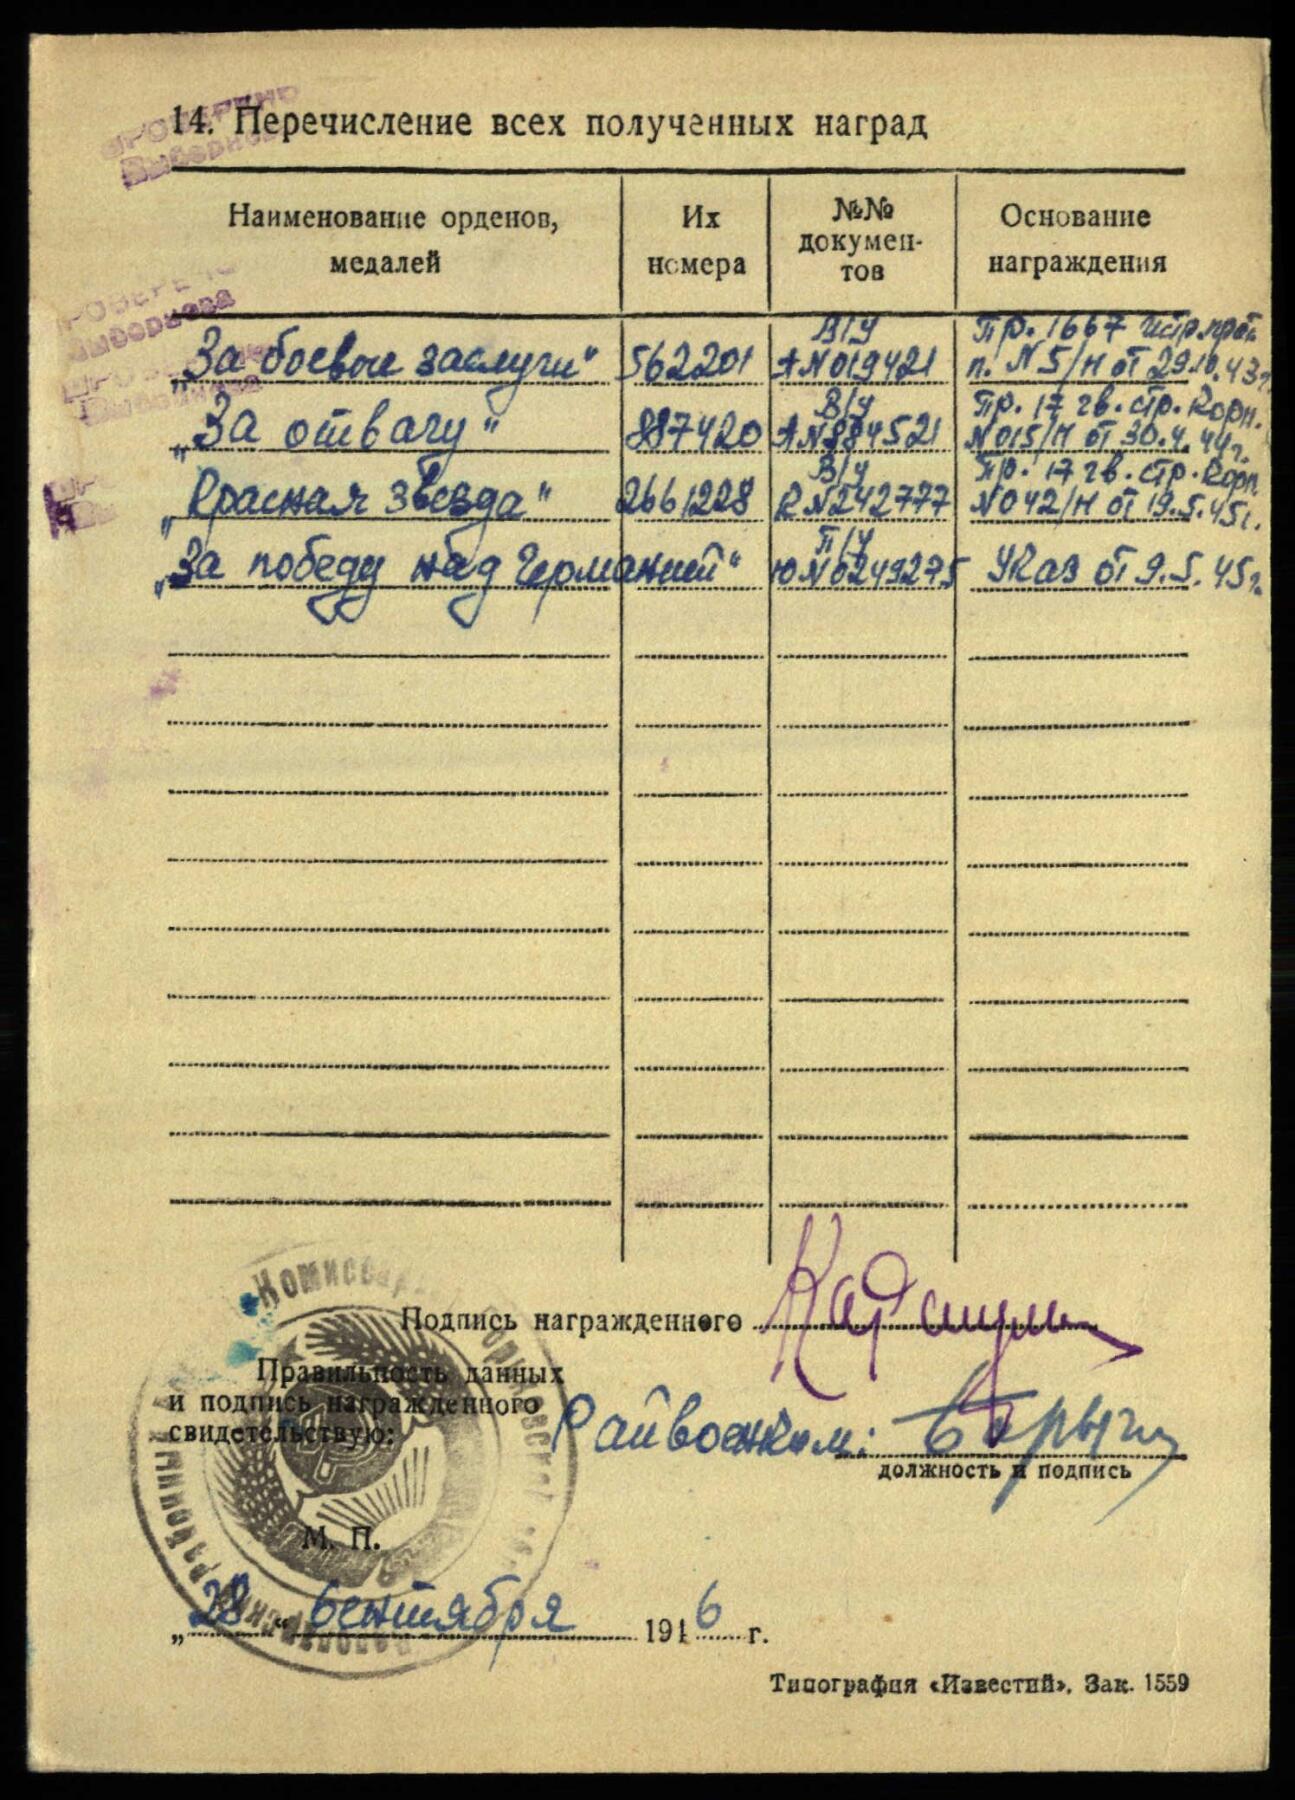 ПРОВЕРЕНО
14. Перечисление всех полученных наград
Наименование орденов, медалей
Их номера
№№ докумен-тов
Основание награждения
„За боевые заслуги“ 562201 В/у А№019421 Пр. 1667 п. №5/Н от 29.10.43г.
„За отвагу“ 887420 В/у А№884521 Пр. 17 гв. стр. Корп. №015/Н от 30.4.44г.
„Красная звезда“ 2661228 В/у К№242777 Пр. 17 гв. стр. Корп. №042/Н от 19.5.45г.
„За победу над Германией“ П/у Ю№0249275 Указ от 9.5.45г.
Подпись награжденного
Правильность данных
и подпись награжденного
свидетельствую:
Райвоенком:
должность и подпись
М. П.
„28“ сентября 1946 г.
Типография «Известий». Зак. 1559